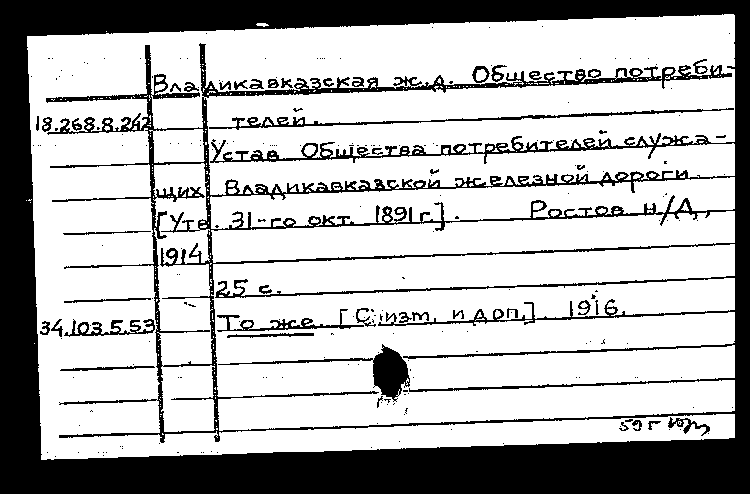 Владикавказская ж.д. Общество потреби-
18.268.8.242 телей.
Устав Общества потребителей служа-
щих Владикавказской железной дороги
[Утв. 31-го окт. 1891 г.]. Ростов н/Д,
1914.
25 с.
34.103.5.53 То же. [С изм. и доп.] 1916.
59 г